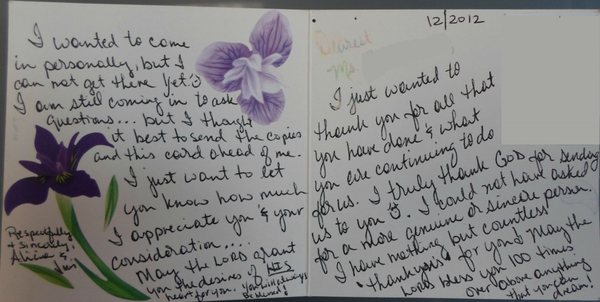 I wanted to come
in personally, but I
can not get there yet.
I am still coming in to ask
questions... but I thought
it best to send the copies
and this card ahead of me.
I just want to let
you know how much
I appreciate you & your
consideration....
May the LORD grant
you the desires of HIS
heart for you. You will always
be blessed!
Respectfully
& Sincerely,
Alicia &
12/2012
Dearest
Ms.
I just wanted to
thank you for all that
you have done & what
you are continuing to do
for us. I truly thank GOD for sending
us to you. I could not have asked
for a more genuine or sincere person.
I have nothing but countless
"thank yous" for you! May the
LORD bless you 100 times
over & above anything
that you can
dream.